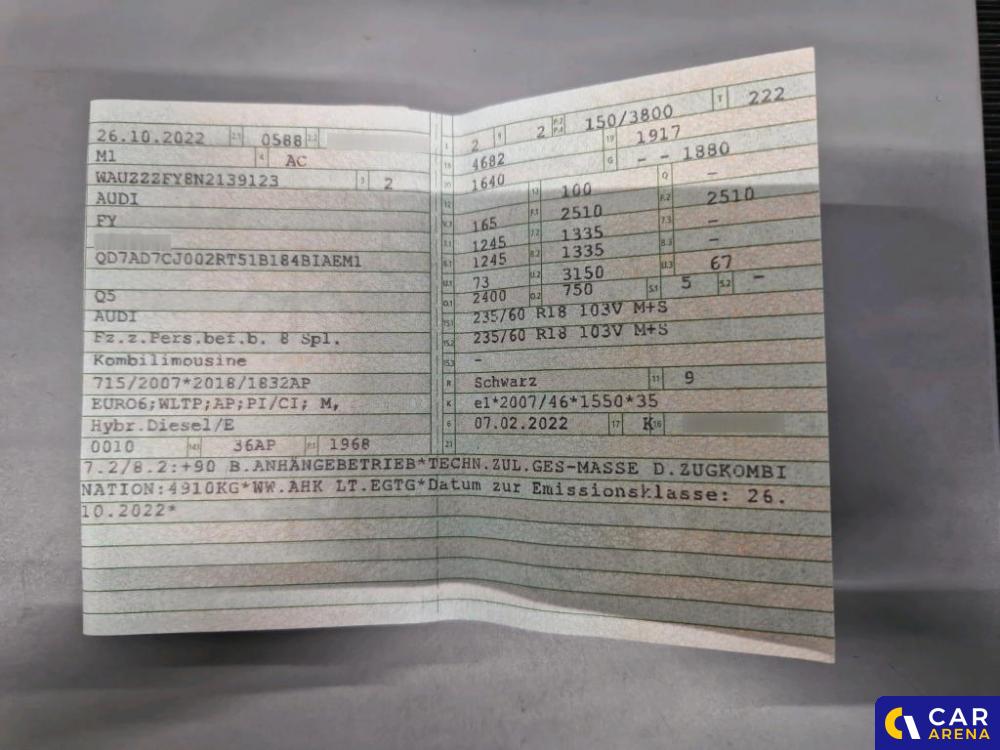 26.10.2022 2.1 0588 2.2
M1 4 AC
WAUZZZFY8N2139123 3 2
AUDI
FY
QD7AD7CJ002RT51B184BIAEM1
Q5
AUDI
Fz.z.Pers.bef.b. 8 Spl.
Kombilimousine
715/2007*2018/1832AP
EURO6;WLTP;AP;PI/CI; M,
Hybr.Diesel/E
0010 14.1 36AP P.1 1968
L 2 9 2 P.2 P.4 150/3800 T 222
18 4682 19 1917
20 1640 G - - 1880
12 13 100 Q -
V.7 165 F.1 2510 F.2 2510
7.1 1245 7.2 1335 7.3 -
8.1 1245 8.2 1335 8.3 -
U.1 73 U.2 3150 U.3 67
O.1 2400 O.2 750 S.1 5 S.2 -
15.1 235/60 R18 103V M+S
15.2 235/60 R18 103V M+S
15.3 -
R Schwarz 11 9
K e1*2007/46*1550*35
6 07.02.2022 17 K 16
21
7.2/8.2:+90 B.ANHÄNGEBETRIEB*TECHN.ZUL.GES-MASSE D.ZUGKOMBI
NATION:4910KG*WW.AHK LT.EGTG*Datum zur Emissionsklasse: 26.
10.2022*
CAR
ARENA